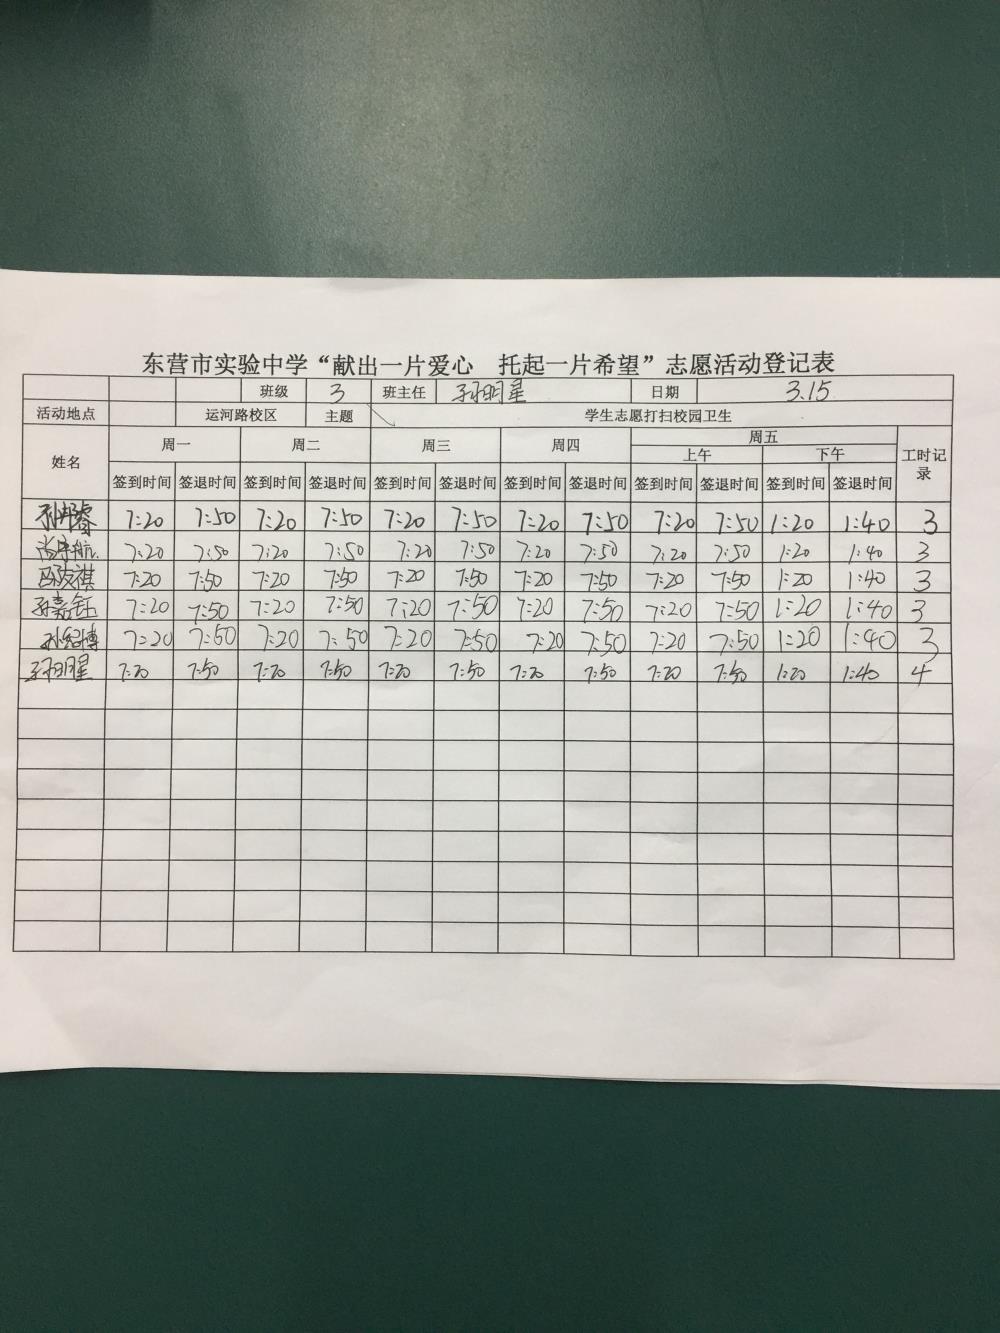 东营市实验中学“献出一片爱心　托起一片希望”志愿活动登记表
班级 3 班主任 孙明星 日期 3.15
活动地点 运河路校区 主题 学生志愿打扫校园卫生
姓名 周一 周二 周三 周四 周五 工时记录
上午 下午
签到时间 签退时间 签到时间 签退时间 签到时间 签退时间 签到时间 签退时间 签到时间 签退时间 签到时间 签退时间
7:20 7:50 7:20 7:50 7:20 7:50 7:20 7:50 7:20 7:50 1:20 1:40 3
7:20 7:50 7:20 7:50 7:20 7:50 7:20 7:50 7:20 7:50 1:20 1:40 3
7:20 7:50 7:20 7:50 7:20 7:50 7:20 7:50 7:20 7:50 1:20 1:40 3
孙嘉钰 7:20 7:50 7:20 7:50 7:20 7:50 7:20 7:50 7:20 7:50 1:20 1:40 3
7:20 7:50 7:20 7:50 7:20 7:50 7:20 7:50 7:20 7:50 1:20 1:40 3
孙明星 7:20 7:50 7:20 7:50 7:20 7:50 7:20 7:50 7:20 7:50 1:20 1:40 4